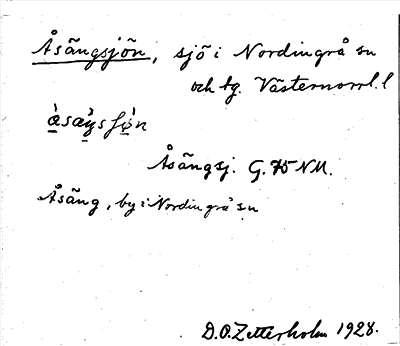 Åsängsjön, sjö i Nordingrå sn
och tg. Västernorrl. l
Åsängsj. G. 75 NM.
Åsäng, by i Nordingrå sn
D.O.Zetterholm 1928.